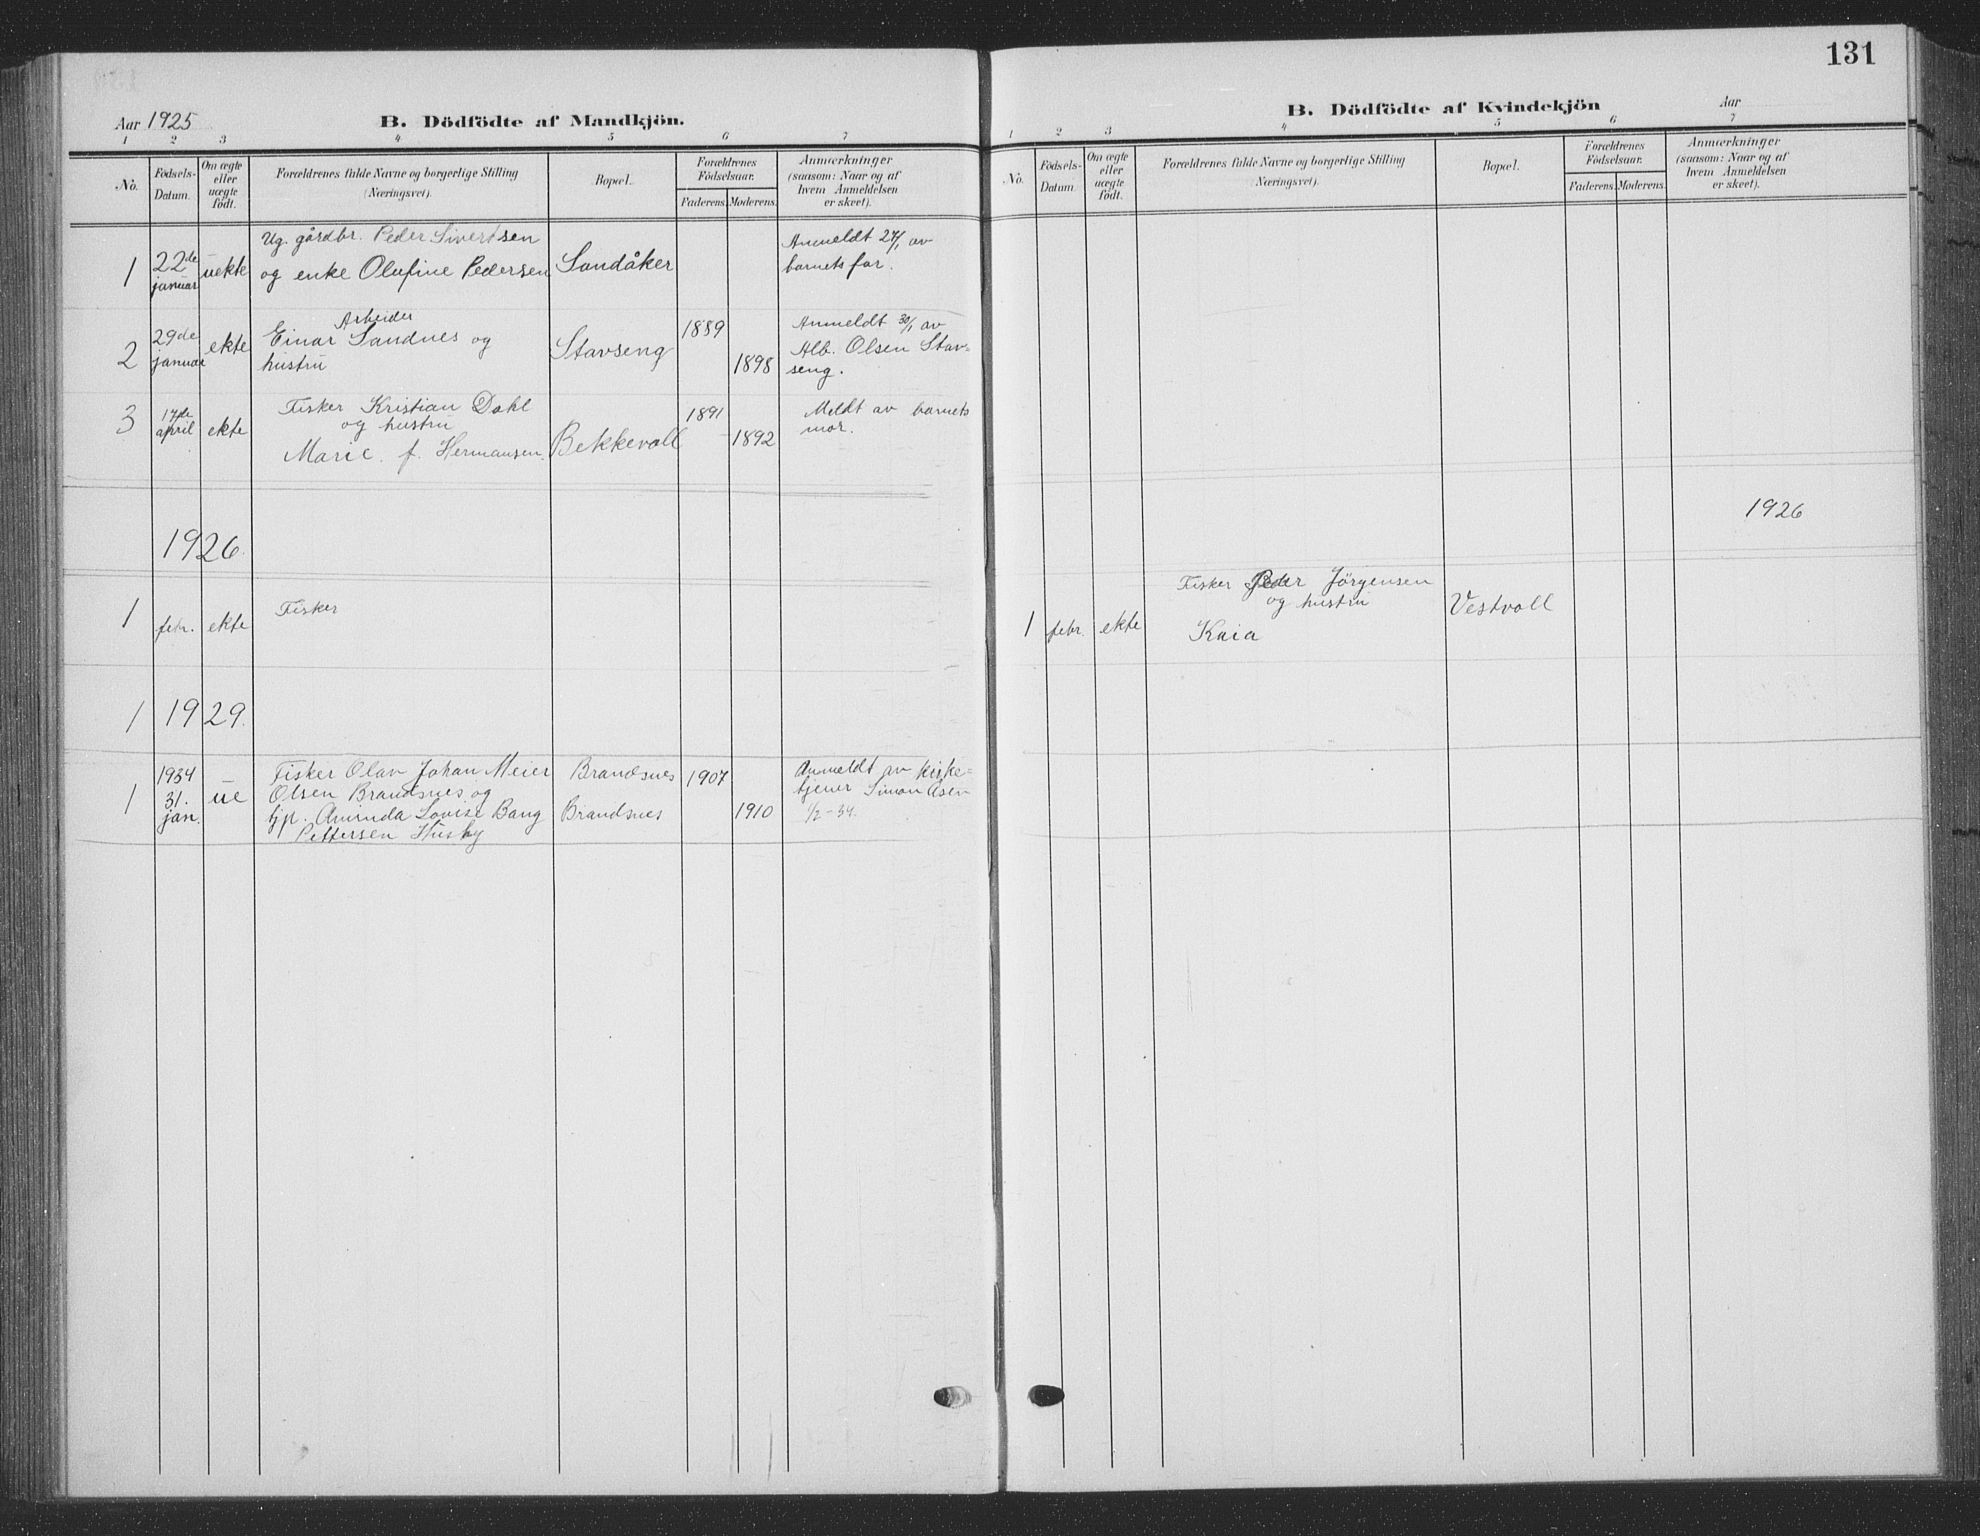 131
Aar 1925
B. Dödfödte af Mandkjön.
1 2 3 4 5 6 7
No.
Födsels-
Datum.
Om ægte
eller
uægte
födt.
Forældrenes fulde Navne og borgerlige Stilling
(Næringsvei).
Bopæl.
Forældrenes
Födselsaar.
Faderens. Moderens.
Anmærkninger
(saasom: Naar og af
hvem Anmeldelsen
er skeet).
1
22de
januar
uekte
Ug. gårdbr. Peder Sivertsen
og enke Olufine Pedersen
Sandåker
Anmeldt 24/1 av
barnets far.
2
29de
januar
ekte
Arbeider
Einar Sandnes og
hustru
Stavseng
1889
1898
Anmeldt 30/1 av
Alb. Olsen Stav=
seng.
3
17de
april
ekte
Fisker Kristian Dahl
og hustru
Marie f. Hermansen.
Bekkevoll
1891
1892
Meldt av barnets
mor.
1926.
1
febr.
ekte
Fisker
1
1929.
1
1934
31.
jan.
ue
Fisker Olav Johan Meier
Olsen Brandsnes og
tjp. Aminda Lovise Bang
Pettersen Husby
Brandsnes
Brandsnes
1907
1910
Anmeldt av kirke=
tjener Simon Åsen
1/2-34.
B. Dödfödte af Kvindekjön
Aar
1 2 3 4 5 6 7
No.
Födsels-
Datum.
Om ægte
eller
uægte
födt.
Forældrenes fulde Navne og borgerlige Stilling
(Næringsvei).
Bopæl.
Forældrenes
Födselsaar.
Faderens. Moderens.
Anmærkninger
(saasom: Naar og af
hvem Anmeldelsen
er skeet).
1926
1
febr.
ekte
Fisker Peder Jörgensen
og hustru
Kaia
Vestvoll